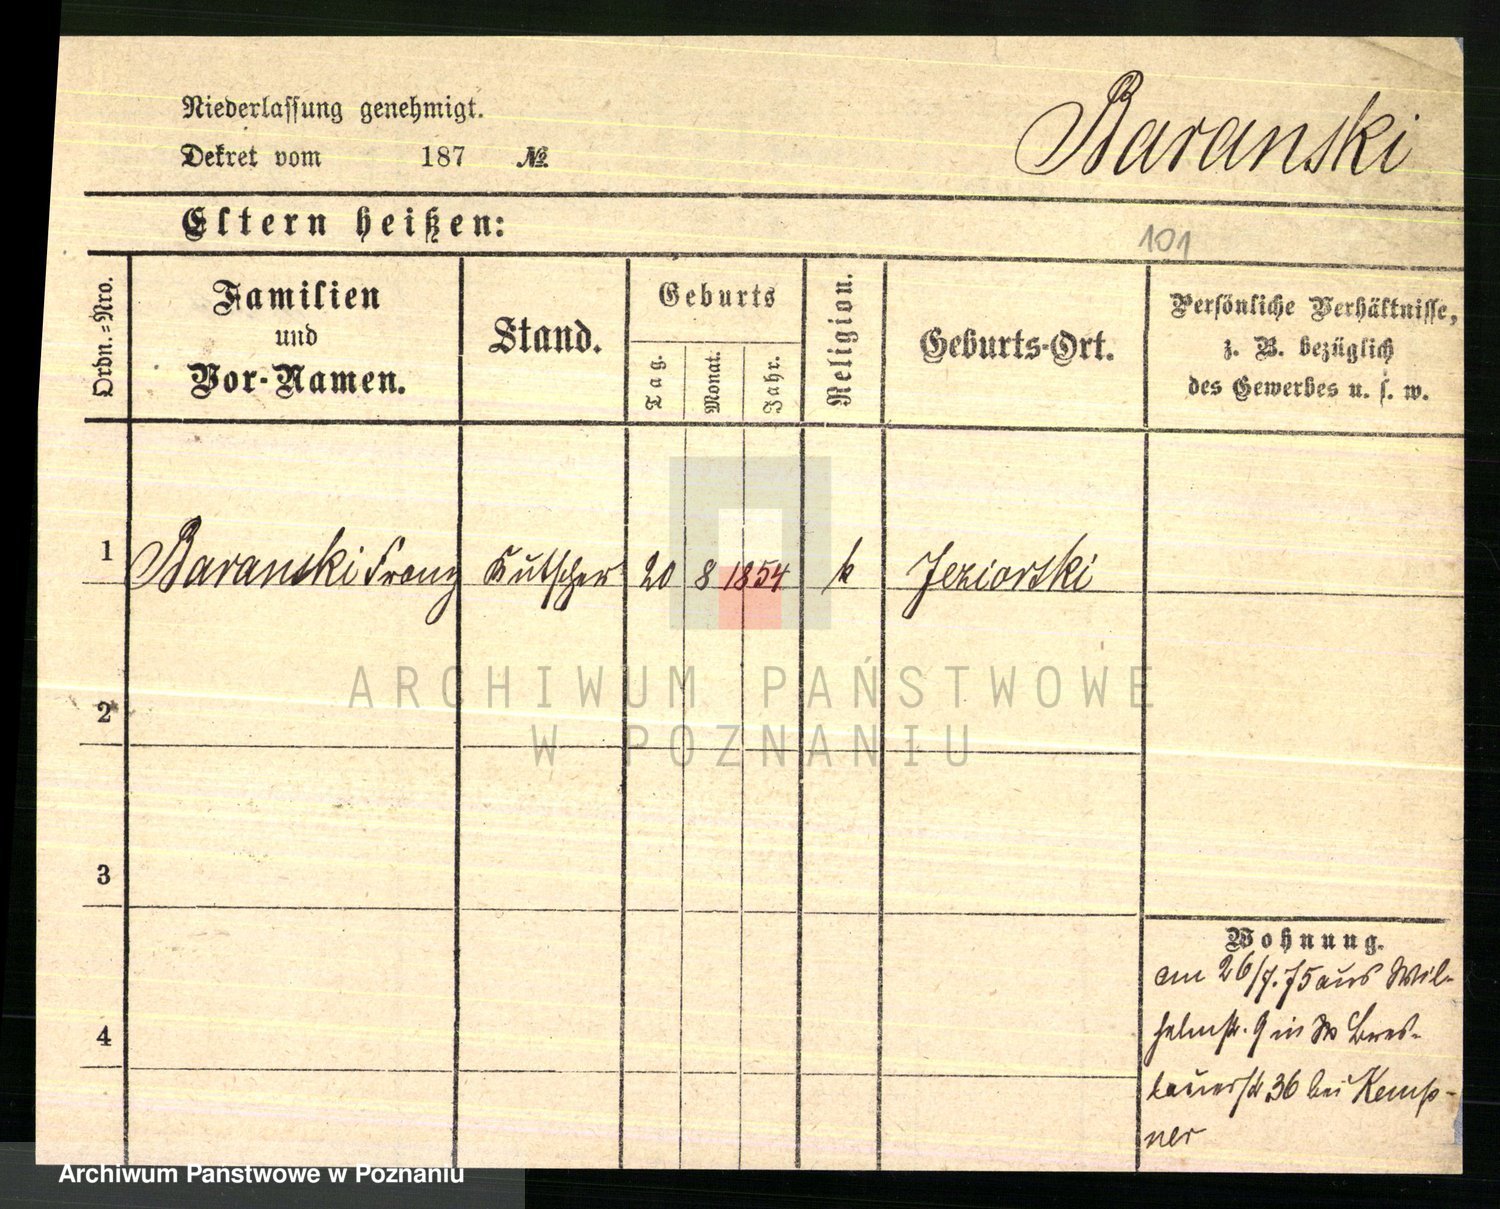 Niederlassung genehmigt.
Dekret vom 187 №
Baranski
Eltern heißen:
101
Ordn.=Nro.
Familien
und
Vor-Namen.
Stand.
Geburts
Tag.
Monat.
Jahr.
Religion.
Geburts-Ort.
Persönliche Verhältnisse,
z. B. bezüglich
des Gewerbes u. s. w.
1 Baranski Franz Kutscher 20 8 1854 k Jeziorski
ARCHIWUM PAŃSTWOWE
W POZNANIU
2
3
4
Wohnung.
am 26/7.75 aus Wil-
helmstr. 9 in Bres-
lauerstr 36 bei Kemp-
ner
Archiwum Państwowe w Poznaniu